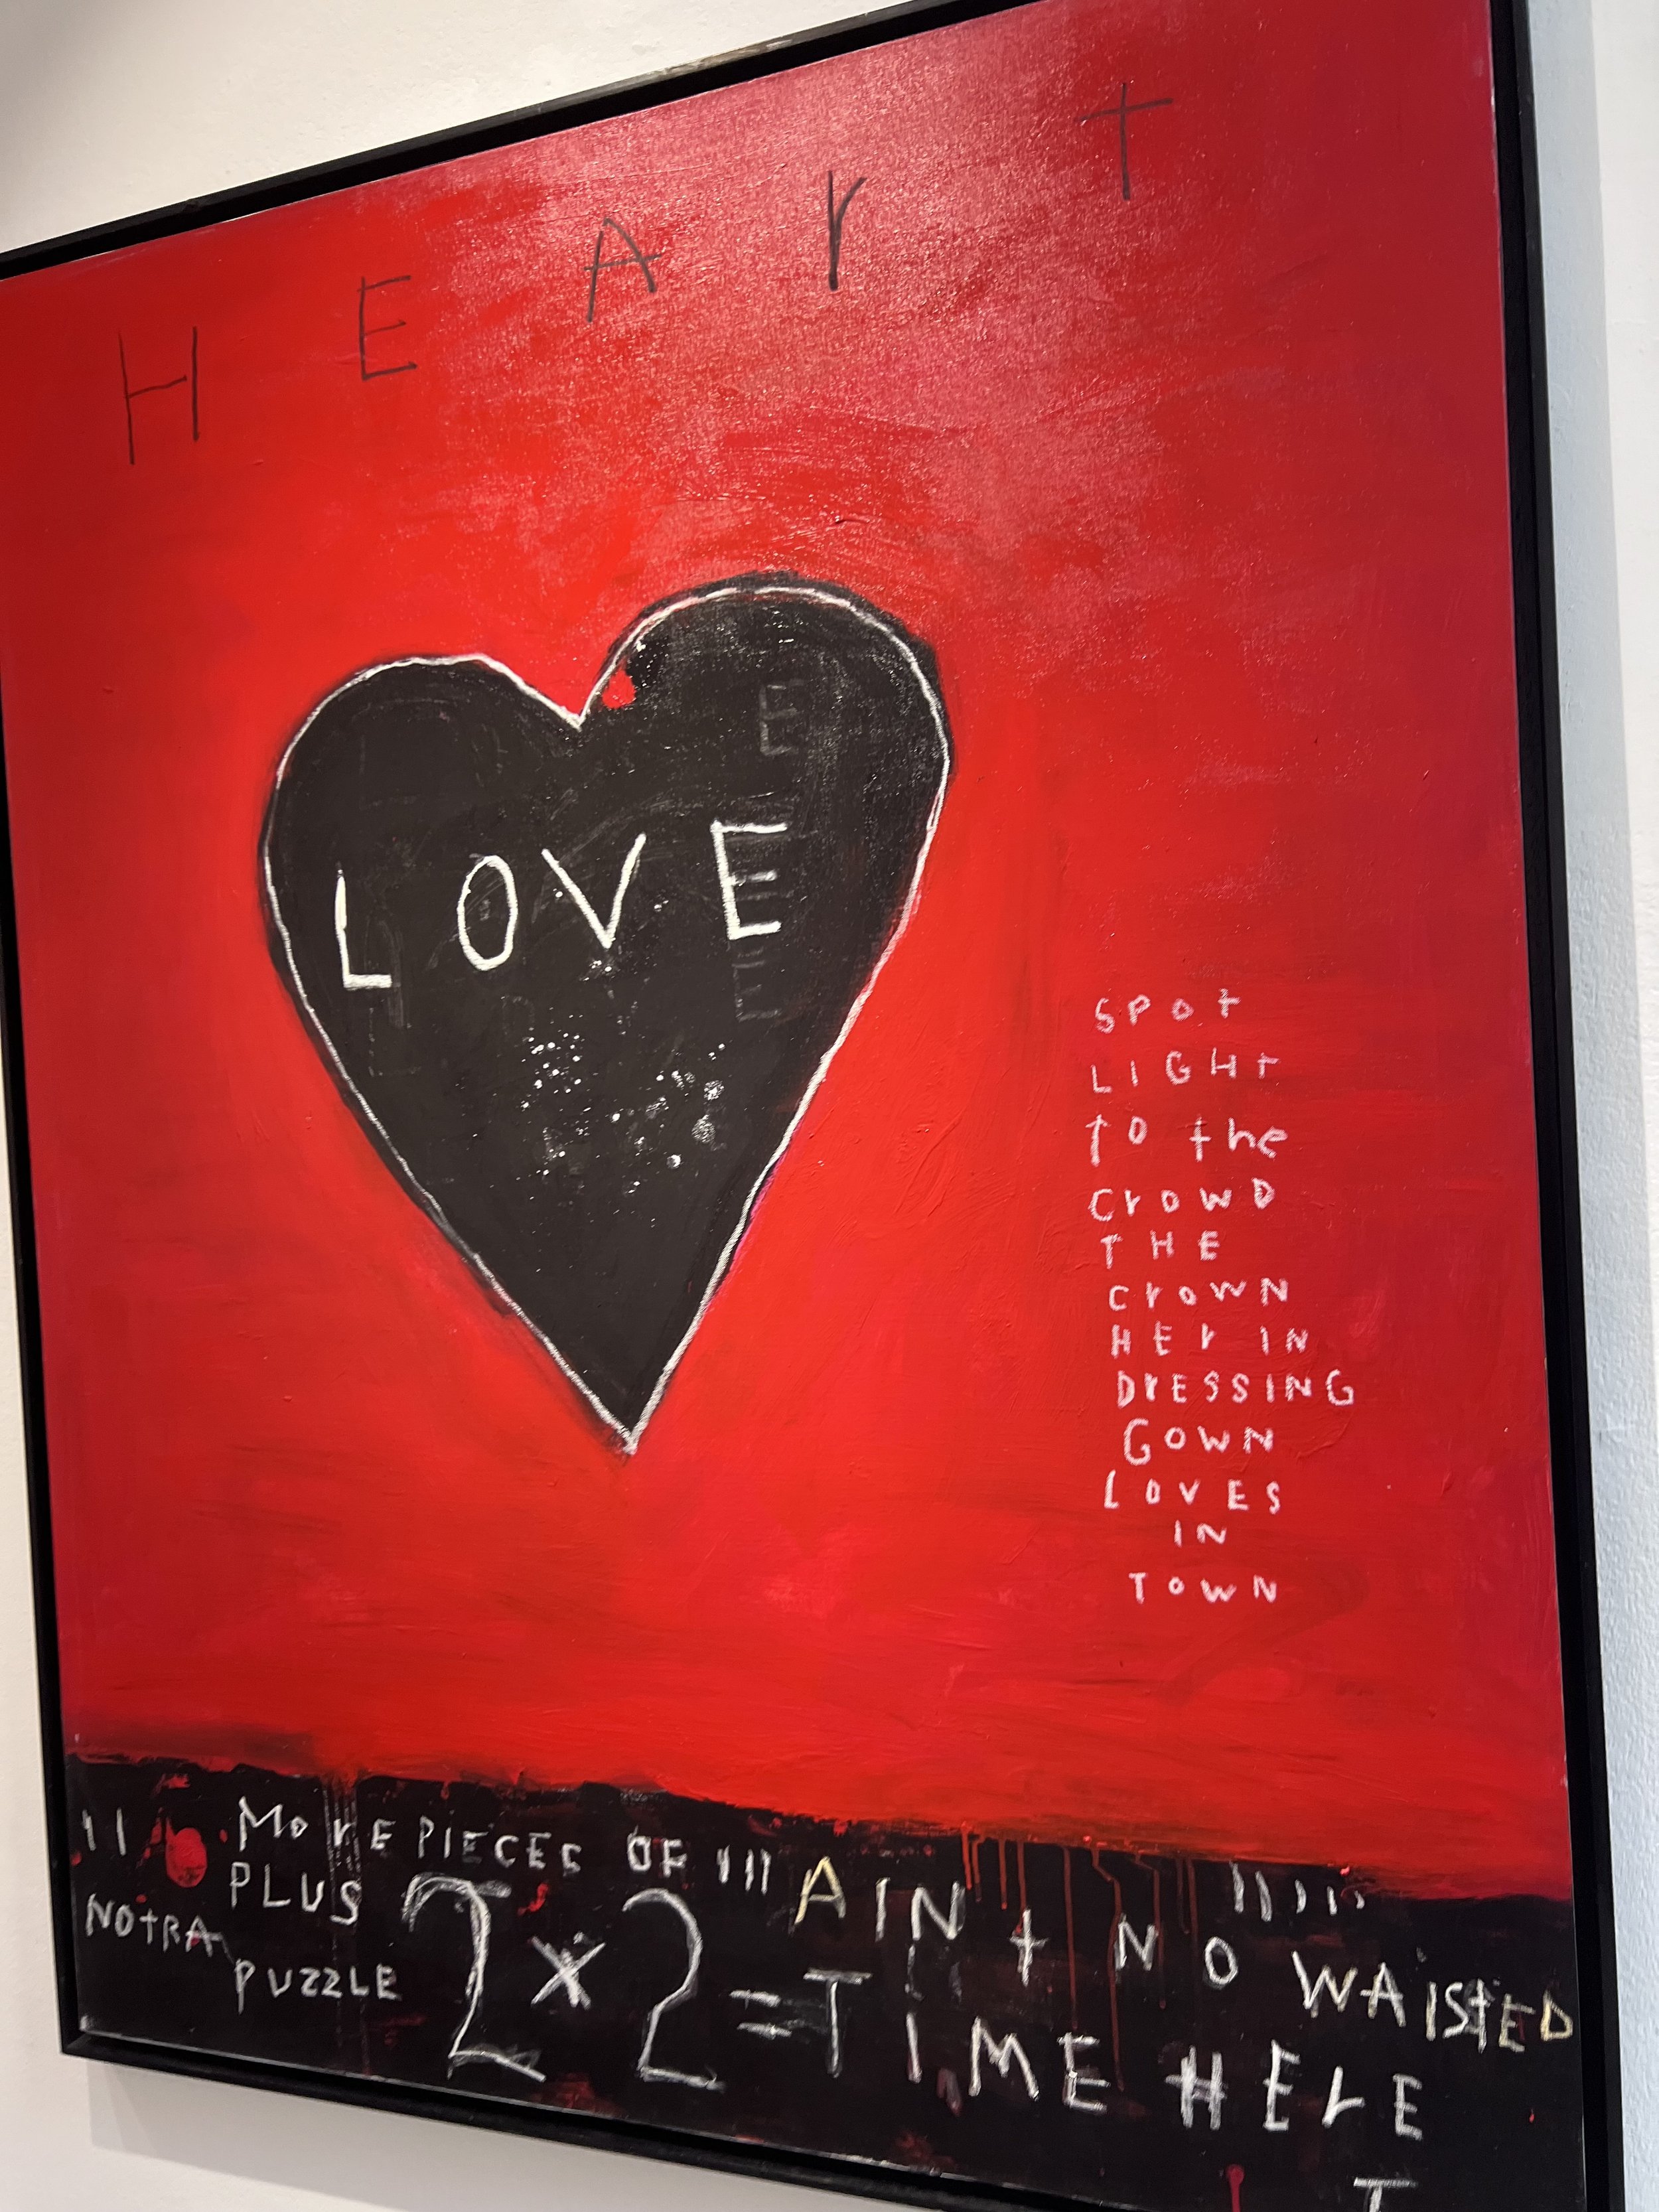 HEArt
LOVE
SPot
LIGHt
to the
CrOWD
THE
CrOWN
HEr IN
DrESSING
GOWN
LOVES
IN
TOWN
MOrE PIECES OF
PLUS
NOtRA
PUZZLE
2x2=
AINt NO WAISTED
TIME HErE
T